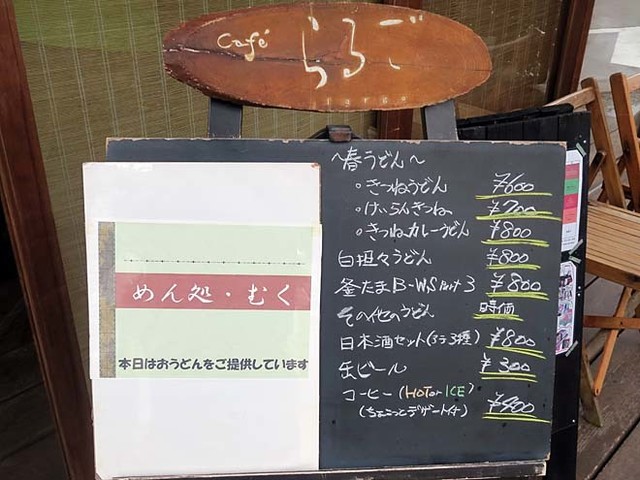 Café らるご
めん処・むく
本日はおうどんをご提供しています
～春うどん～
・きつねうどん ¥600
・けいらんきつね ¥700
・きつねカレーうどん ¥800
白担々うどん ¥800
釜たまB-W.S Part 3 ¥800
その他のうどん 時価
日本酒セット(3種) ¥800
缶ビール ¥300
コーヒー(HOT or ICE)
(ちょこっとデザート付) ¥400